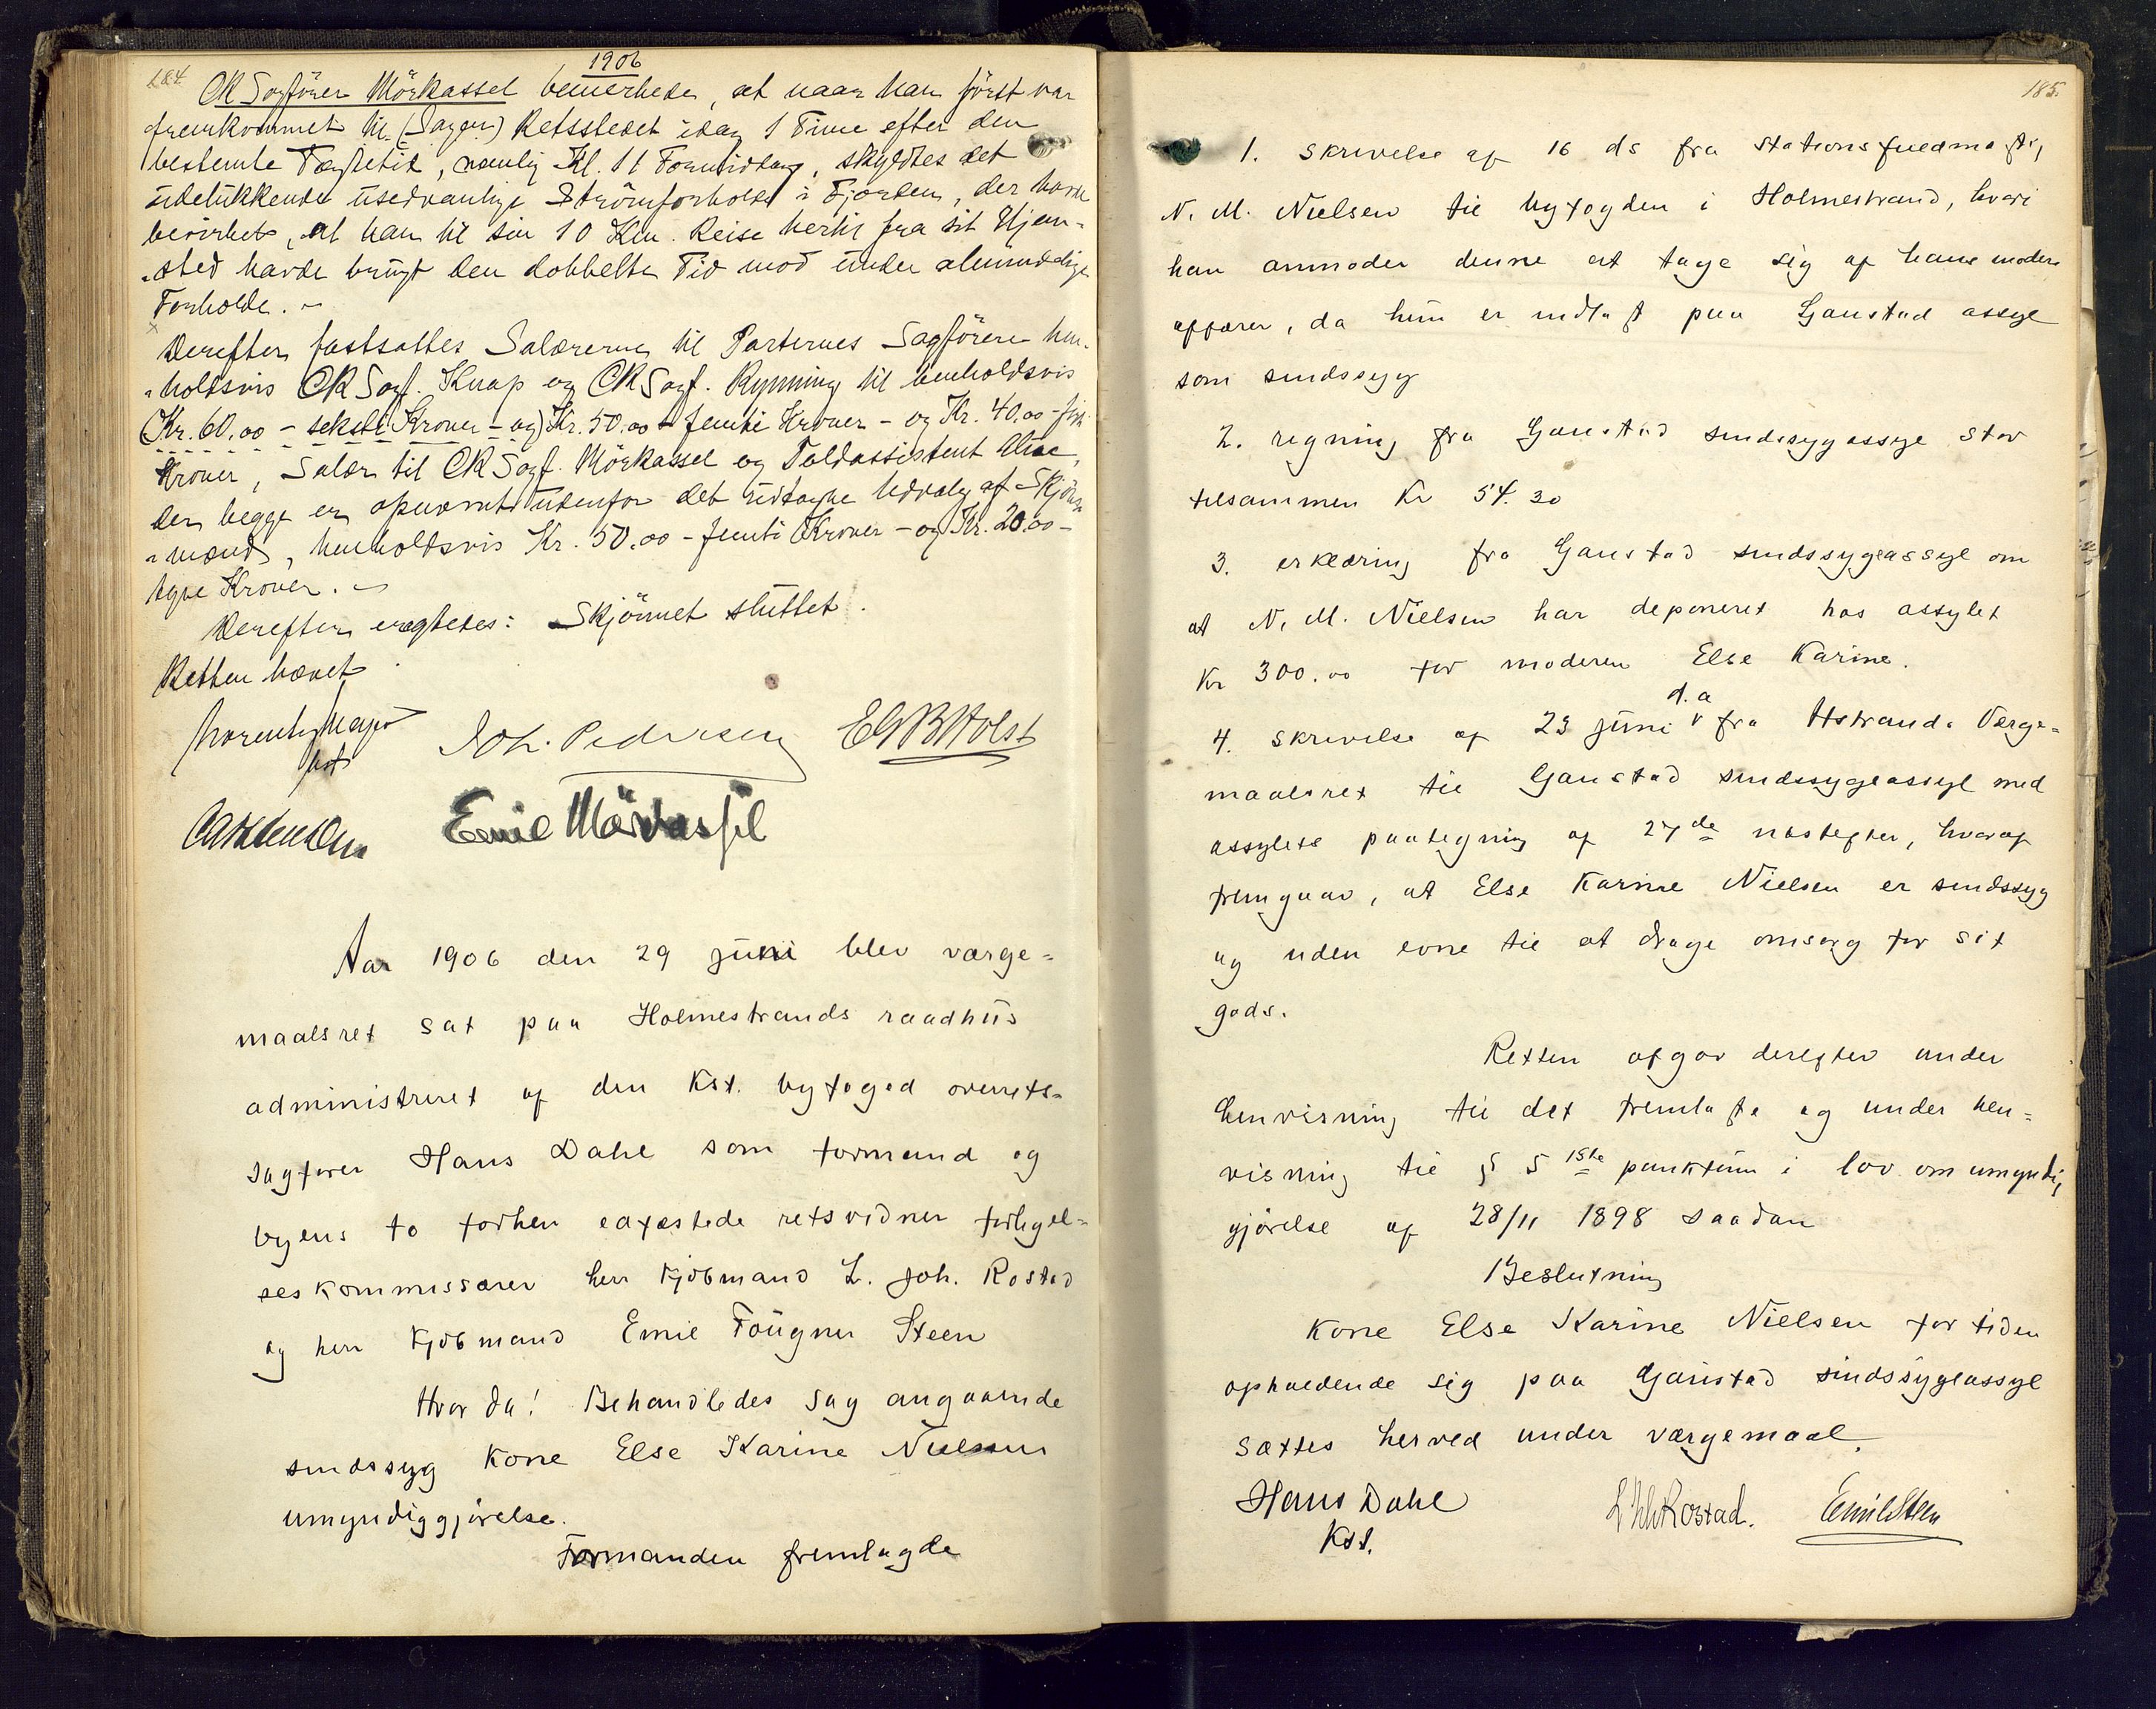 184
1906
OR Sagfører Mörkassel bemerkede, at naar han först var
fremkommet til (Sagen) Retsstedet idag 1 Time efter den
bestemte Tægtetid, nemlig Kl. 11 Formiddag, skyldtes det
udelukkende usedvanlige Strömforholde i Fjorden, der havde
bevirket, at han til sin 10 Km. Reise hertil fra sit Hjem-
sted havde brugt den dobbelte Tid mod under almindelige
Forholde. -
Derefter fastsattes Salærerne til Parternes Sagförere hen-
holdsvis OR Sagf. Knap og OR Sagf. Rynning til henholdsvis
(Kr. 60.00 - seksti Kroner - og) Kr. 50.00 - femti Kroner - og Kr. 40.00 - förti
Kroner, Salær til OR Sagf. Mörkassel og Toldassistent
der begge er opnævnt udenfor det udtagne Udvalg af Skjöns-
mænd, henholdsvis Kr. 50.00 - femti Kroner - og Kr. 20.00 -
tyve Kroner. -
Derefter eragtedes: Skjönnet sluttet.
Retten hævet.
Joh. Pedersen EGBHolst
Emil Mörkassel
Aar 1906 den 29 juni blev værge=
maalsret sat paa Holmestrands raadhus
administreret af den Kst. byfoged overrets=
sagfører Hans Dahl som formand og
byens to forhen edfæstede retsvidner forligel=
seskommissærer herr Kjöbmand L. Joh. Rostad
og herr Kjöbmand Emil Fougner Steen
Hvor da! Behandledes sag angaaende
sindssyg Kone Else Karine Nielsens
umyndiggjörelse.
Formanden fremlagde
185.
1. skrivelse af 16 ds fra Stationsfuldmægtig
N. M. Nielsen til byfogden i Holmestrand, hvori
han anmoder denne at tage sig af hans moders
affærer, da hun er indlagt paa Gaustad assyl
som sindssyg
2. regning fra Gaustad sindssygassyl stor
tilsammen Kr 54.30
3. erklæring fra Gaustad sindssygeassyl om
at N. M. Nielsen har deponeret hos assylet
Kr 300.00 for moderen Else Karine.
d.a
4. skrivelse af 23 juni v fra Hstrands Værge=
maalsret til Gaustad sindssygeassyl med
assylets paategning af 27de næstefter, hvoraf
fremgaar, at Else Karine Nielsen er sindssyg
og uden evne til at drage omsorg for sit
gods.
Retten afgav derefter under
henvisning til det fremlagte og under hen=
visning til § 5 1ste punktum i lov om umyndig
gjörelse af 28/11 1898 saadan
Beslutning
Kone Else Karine Nielsen for tiden
opholdende sig paa Gaustad sindssygeassyl
sættes herved under værgemaal.
Hans Dahl
Kst.
L Joh Rostad. Emil Steen